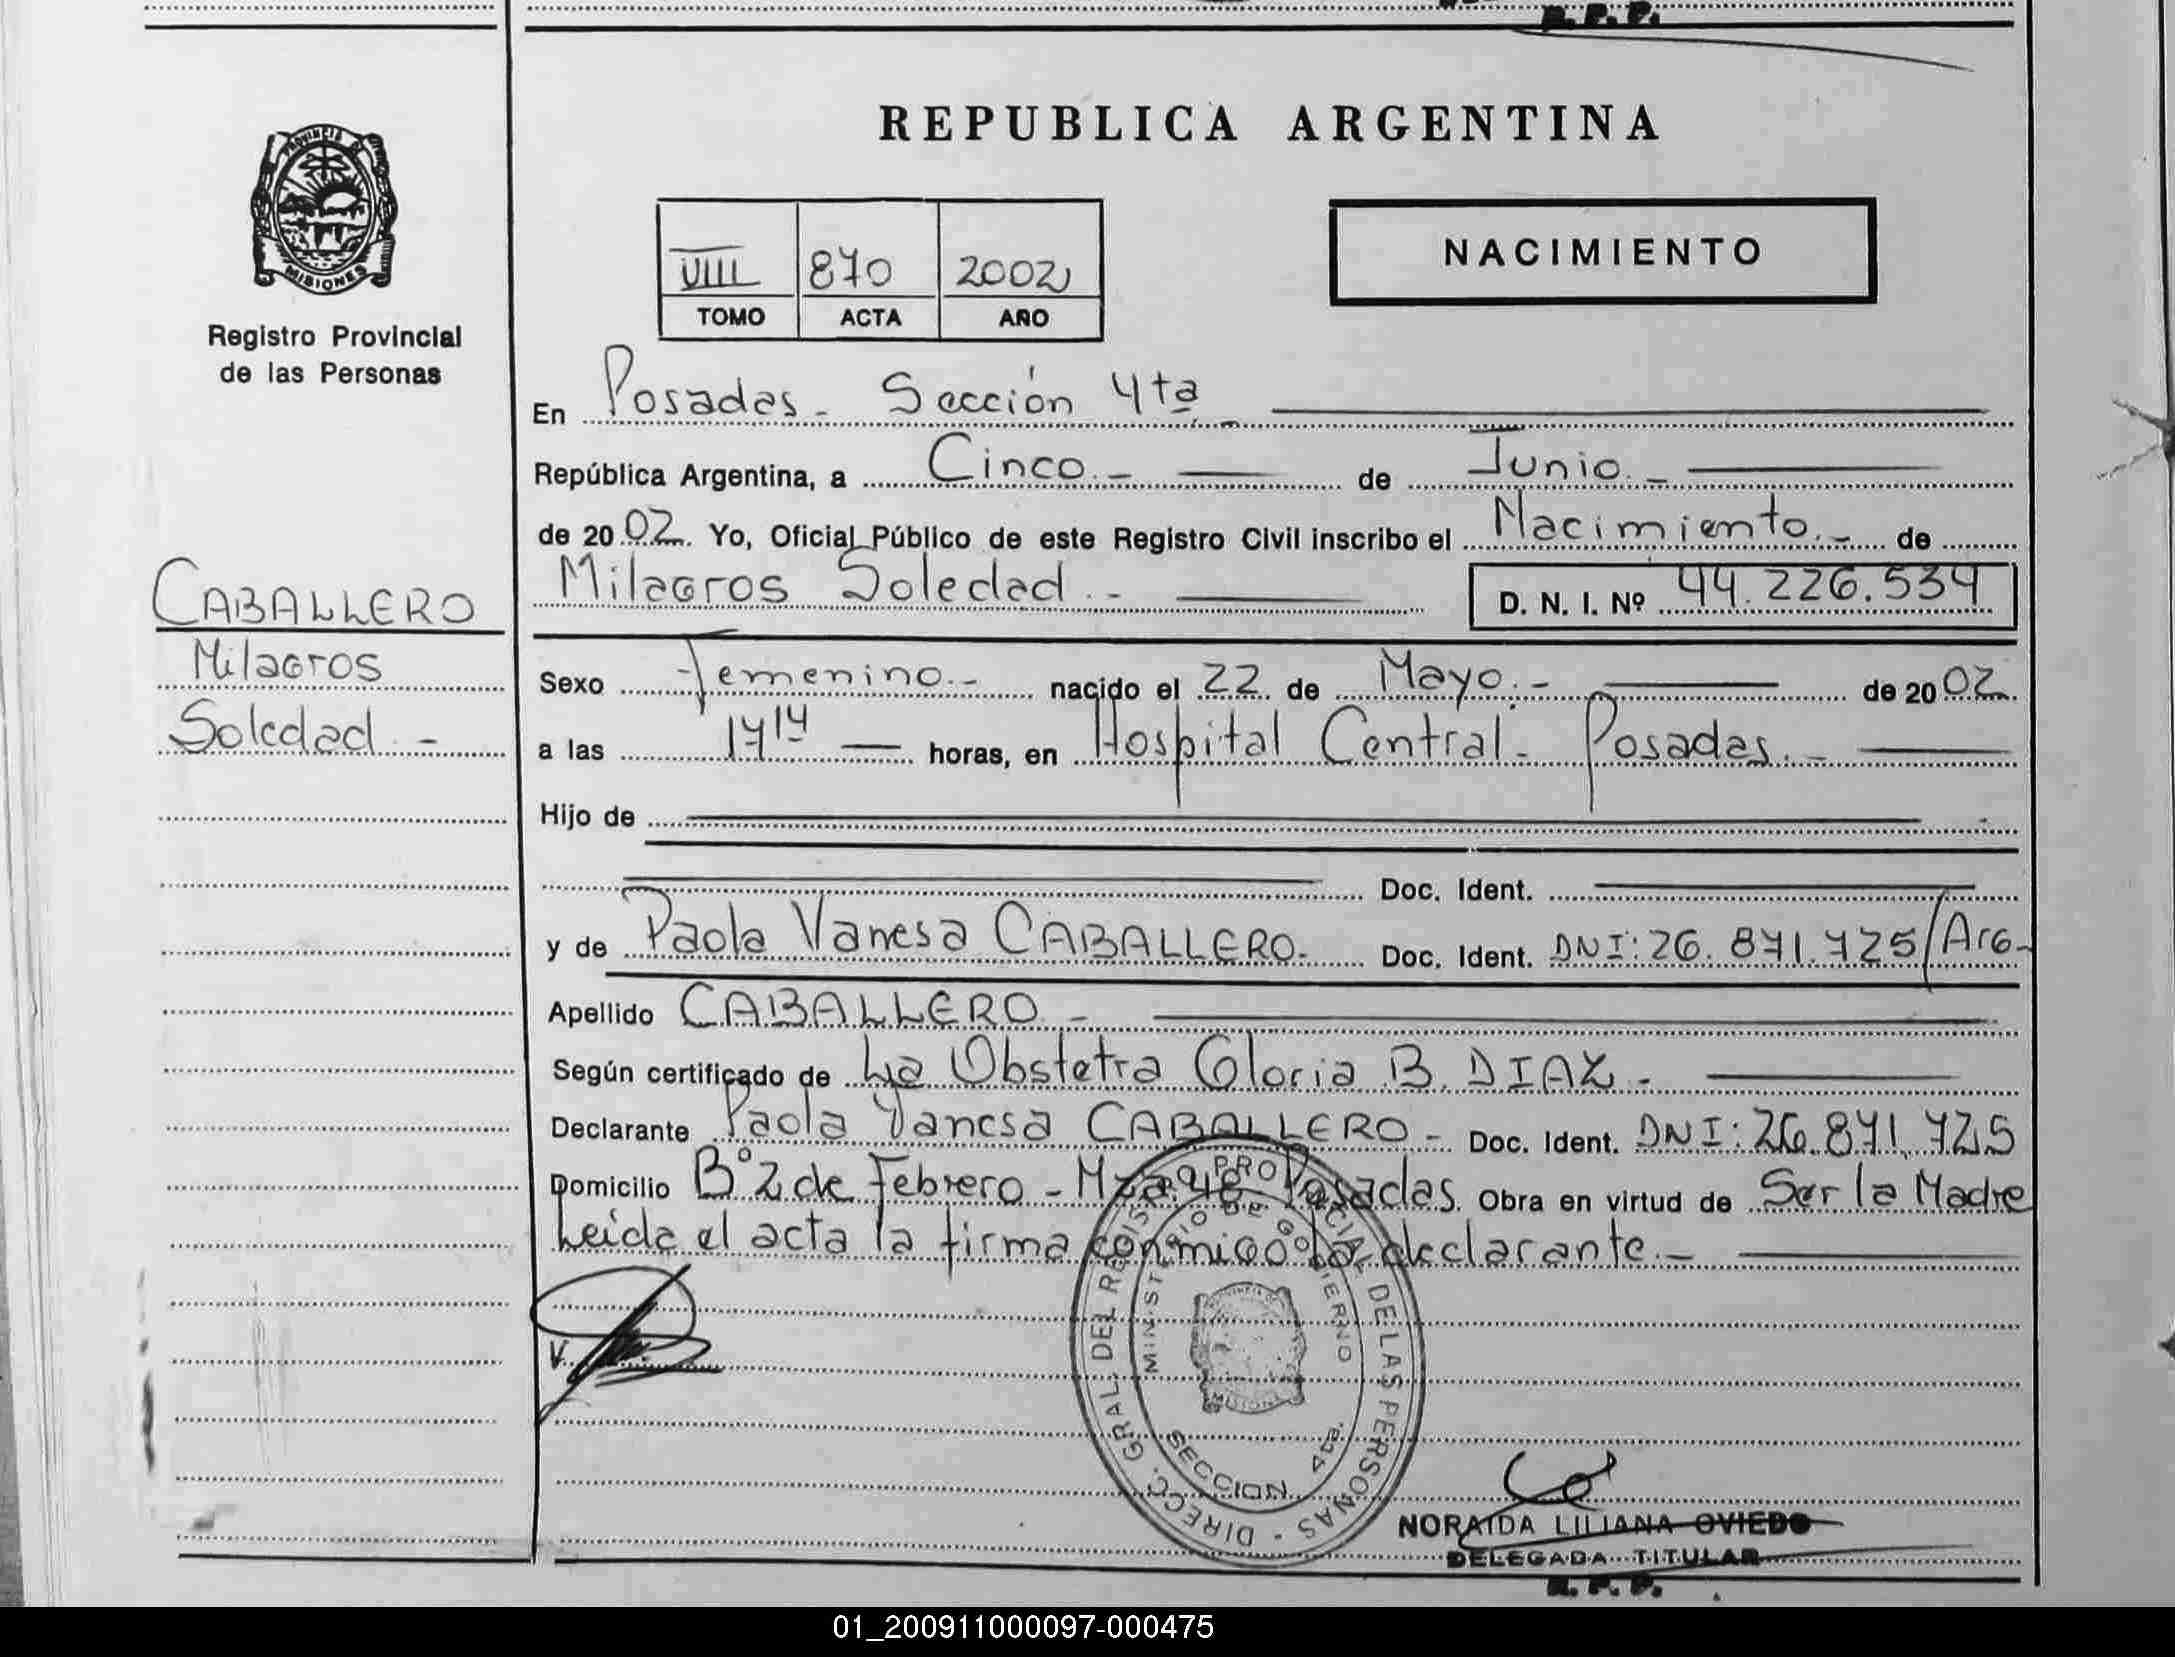 R. P. P.
PROVINCIA DE
MISIONES
Registro Provincial
de las Personas
REPUBLICA ARGENTINA
VIII 870 2002
TOMO ACTA AÑO
NACIMIENTO
En Posadas - Sección 4ta
República Argentina, a Cinco.- de Junio.-
de 20 02. Yo, Oficial Público de este Registro Civil inscribo el Nacimiento.- de
Milagros Soledad.- D. N. I. Nº 44.226.534
CABALLERO
Milagros
Soledad.-
Sexo Femenino.- nacido el 22 de Mayo.- de 20 02.
a las 17 14 horas, en Hospital Central - Posadas.-
Hijo de
Doc. Ident.
y de Paola Vanesa CABALLERO.- Doc. Ident. DNI: 26.871.725/Arg-
Apellido CABALLERO -
Según certificado de La Obstetra Gloria B. DIAZ.-
Declarante Paola Vanesa CABALLERO - Doc. Ident. DNI: 26.871.725
Domicilio Bº 2 de Febrero - Mza. 48 Posadas. Obra en virtud de Ser la Madre
Leída el acta la firma conmigo la declarante.-
DIRECC. GRAL. DEL REGISTRO PROVINCIAL DE LAS PERSONAS -
MINISTERIO DE GOBIERNO
SECCION 4ta.
NORAIDA LILIANA OVIEDO
DELEGADA TITULAR
R. P. P.
01_200911000097-000475